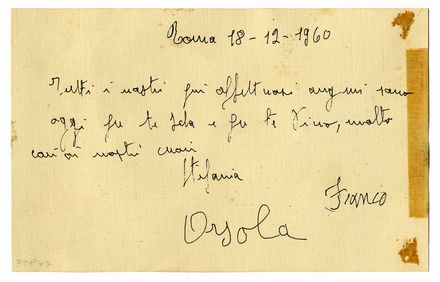 Roma 18-12-1960
Tutti i nostri più affettuosi auguri sono
oggi per te Ida e per te Nino, molto
cari ai nostri cuori
Stefania
Franco
Orsola